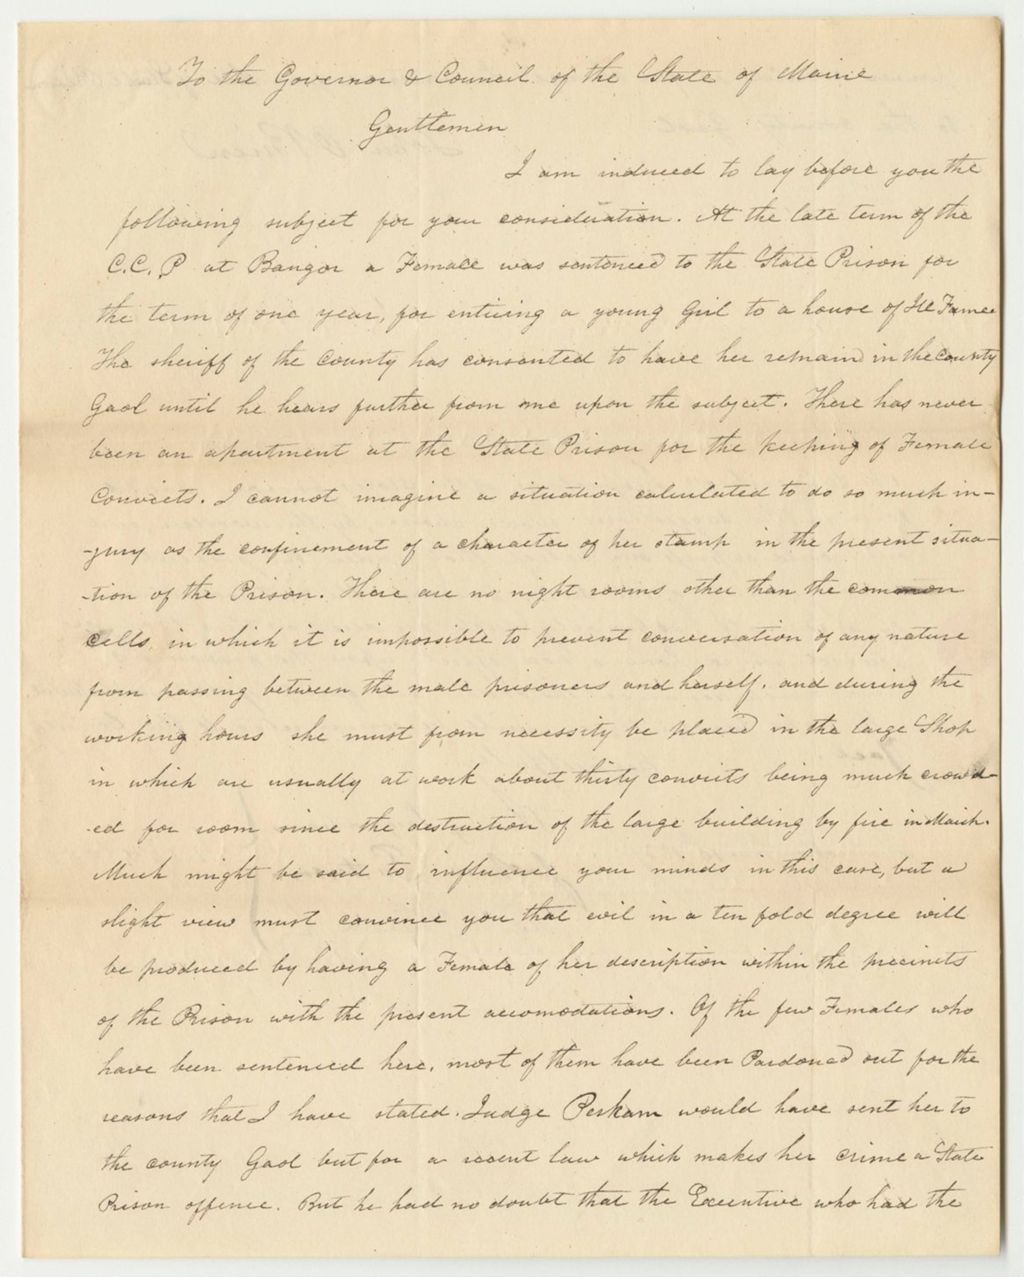 To the Governor & Council of the State of Maine
Gentlemen
I am induced to lay before you the
following subject for your consideration. At the late term of the
C.C.P at Bangor a Female was sentenced to the State Prison for
the term of one year, for enticing a young Girl to a house of Ill Fame
The sheriff of the County has consented to have her remain in the County
Gaol until he hears further from me upon the subject. There has never
been an apartment at the State Prison for the keeping of Female
Convicts. I cannot imagine a situation calculated to do so much in-
-jury as the confinement of a character of her stamp in the present situa-
-tion of the Prison. There are no night rooms other than the common
cells, in which it is impossible to prevent conversation of any nature
from passing between the male prisoners and herself. and during the
working hours she must from necessity be placed in the large Shop
in which are usually at work about thirty convicts being much crowd-
-ed for room since the destruction of the large building by fire in March.
Much might be said to influence your minds in this case, but a
slight view must convince you that evil in a ten fold degree will
be produced by having a Female of her description within the precincts
of the Prison with the present accomodations. Of the few Females who
have been sentenced here, most of them have been Pardoned out for the
reasons that I have stated. Judge Perham would have sent her to
the county Gaol but for a recent law which makes her crime a State
Prison offence. But he had no doubt that the Executive who had the